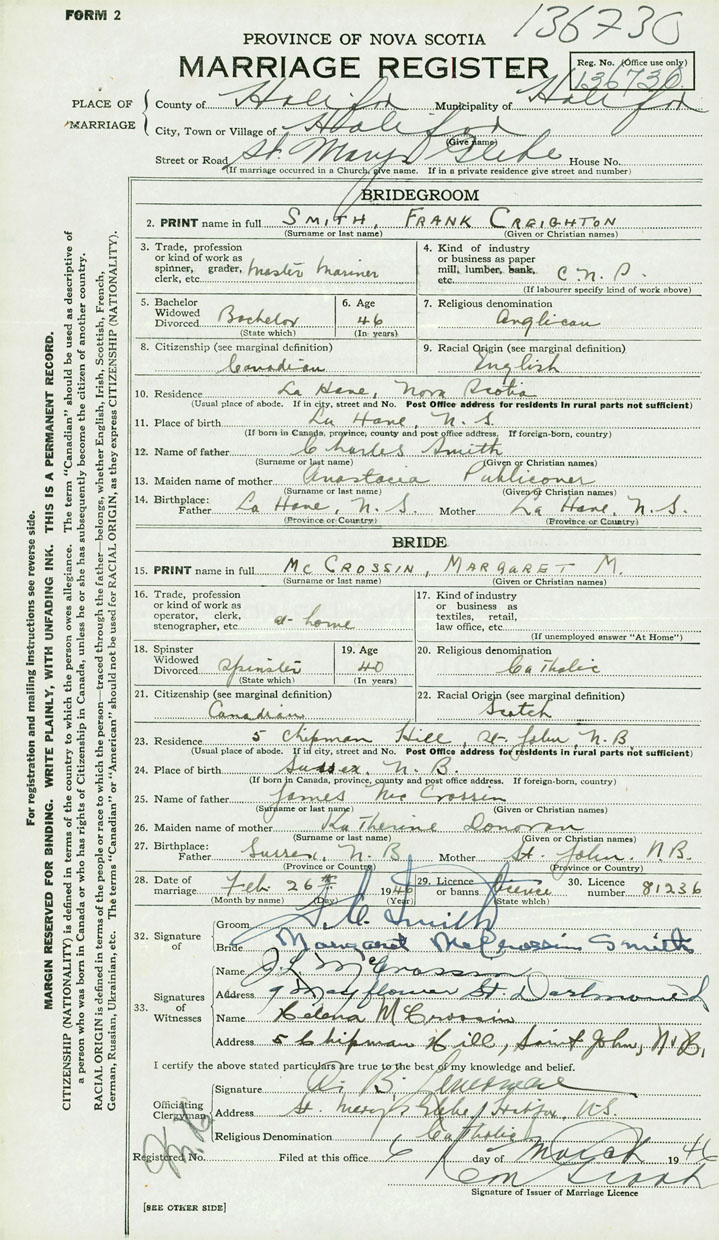 FORM 2
136730
PROVINCE OF NOVA SCOTIA
MARRIAGE REGISTER
Reg. No. (Office use only)
136730
PLACE OF MARRIAGE
County of Halifax Municipality of Halifax
City, Town or Village of Halifax
(Give name)
Street or Road St. Mary's Glebe House No.
(If marriage occurred in a Church, give name. If in a private residence give street and number)
BRIDEGROOM
2. PRINT name in full SMITH, FRANK CREIGHTON
(Surname or last name) (Given or Christian names)
3. Trade, profession or kind of work as spinner, grader, clerk, etc. Master Mariner
4. Kind of industry or business as paper mill, lumber, bank, etc. C.N.R.
(If labourer specify kind of work above)
5. Bachelor Widowed Divorced Bachelor
(State which)
6. Age 46
(In years)
7. Religious denomination
Anglican
8. Citizenship (see marginal definition)
Canadian
9. Racial Origin (see marginal definition)
English
10. Residence La Have, Nova Scotia
(Usual place of abode. If in city, street and No. Post Office address for residents in rural parts not sufficient)
11. Place of birth La Have, N.S.
(If born in Canada, province, county and post office address. If foreign-born, country)
12. Name of father Charles Smith
(Surname or last name) (Given or Christian names)
13. Maiden name of mother Anastacia Publicover
(Surname or last name) (Given or Christian names)
14. Birthplace: Father La Have, N.S. Mother La Have, N.S.
(Province or Country) (Province or Country)
BRIDE
15. PRINT name in full MCCROSSIN, MARGARET M.
(Surname or last name) (Given or Christian names)
16. Trade, profession or kind of work as operator, clerk, stenographer, etc at home
17. Kind of industry or business as textiles, retail, law office, etc.
(If unemployed answer "At Home")
18. Spinster Widowed Divorced Spinster
(State which)
19. Age 40
(In years)
20. Religious denomination
Catholic
21. Citizenship (see marginal definition)
Canadian
22. Racial Origin (see marginal definition)
Scotch
23. Residence 5 Chipman Hill, St. John, N.B.
(Usual place of abode. If in city, street and No. Post Office address for residents in rural parts not sufficient)
24. Place of birth Sussex, N.B.
(If born in Canada, province, county and post office address. If foreign-born, country)
25. Name of father James McCrossin
(Surname or last name) (Given or Christian names)
26. Maiden name of mother Katherine Donovan
(Surname or last name) (Given or Christian names)
27. Birthplace: Father Sussex, N.B. Mother St. John, N.B.
(Province or Country) (Province or Country)
28. Date of marriage Feb. 26th 1946 29. Licence or banns licence 30. Licence number 81236
(Month by name) (Day) (Year) (State which)
32. Signature of
Groom F.C. Smith
Bride Margaret McCrossin Smith
33. Signatures of Witnesses
Name J.L. McCrossin
Address 9 Mayflower St. Dartmouth
Name Helena McCrossin
Address 5 Chipman Hill, Saint John, N.B.
I certify the above stated particulars are true to the best of my knowledge and belief.
Officiating Clergyman
Signature
Address St. Mary's Glebe, Halifax, N.S.
Religious Denomination Catholic
Registered No. Filed at this office 6 day of March 1946
Signature of Issuer of Marriage Licence
[SEE OTHER SIDE]
For registration and mailing instructions see reverse side.
MARGIN RESERVED FOR BINDING. WRITE PLAINLY, WITH UNFADING INK. THIS IS A PERMANENT RECORD.
CITIZENSHIP (NATIONALITY) is defined in terms of the country to which the person owes allegiance. The term "Canadian" should be used as descriptive of
a person who was born in Canada or who has rights of Citizenship in Canada, unless he or she has subsequently become the citizen of another country.
RACIAL ORIGIN is defined in terms of the people or race to which the person—traced through the father—belongs, whether English, Irish, Scottish, French,
German, Russian, Ukrainian, etc. The terms "Canadian" or "American" should not be used for RACIAL ORIGIN, as they express CITIZENSHIP (NATIONALITY).